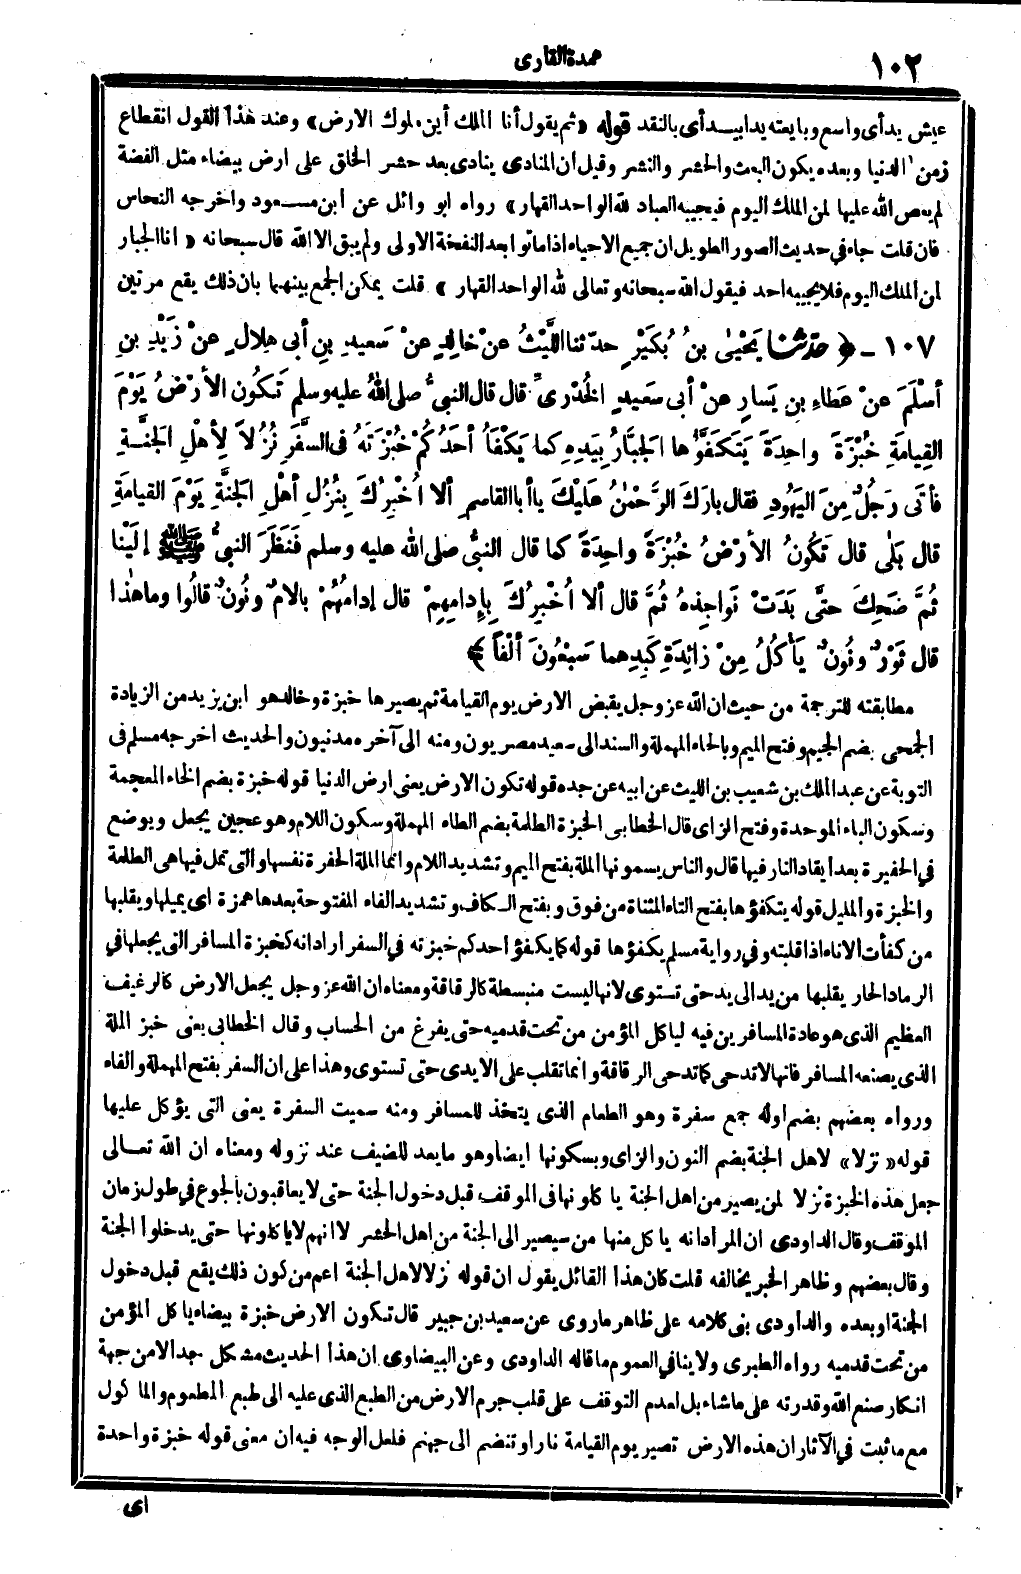 ١٠٢
عمدة القارى
عيش يد أى واسع وبايعته يدا بيد أى بالنقد قوله «ثم يقول أنا الملك أين ملوك الارض» وعند هذا القول انقطاع
زمن الدنيا وبعده يكون البعث والحشر والنشر وقيل ان المنادى ينادى بعد حشر الخلق على ارض بيضاء مثل الفضة
لم يعص الله عليها لمن الملك اليوم فيجيبه العباد لله الواحد القهار» رواه ابو وائل عن ابن مسعود واخرجه النحاس
فان قلت جاء فى حديث الصور الطويل ان جميع الاحياء اذا ماتوا بعد النفخة الاولى ولم يبق الا الله قال سبحانه «انا الجبار
لمن الملك اليوم فلا يجيبه احد فيقول الله سبحانه وتعالى لله الواحد القهار» قلت يمكن الجمع بينهما بان ذلك يقع مرتين
١٠٧ - ﴿ حدثنا يَحْيىٰ بنُ بُكَيْرٍ حدّثنا اللَّيْثُ عنْ خالِدٍ عنْ سَعِيدِ بنِ أبى هِلالٍ عنْ زَيْدِ بنِ
أسْلَمَ عنْ عَطاءِ بنِ يَسارٍ عنْ أبى سَعِيدٍ الخُدْرىِّ قال قال النبىُّ صلى اللهُ عليه وسلم تَكُونُ الأرْضُ يَوْمَ
القِيامَةِ خُبْزَةً واحِدَةً يَتَكَفَّؤُها الجَبَّارُ بِيَدِهِ كما يَكْفَأُ أحَدُكُمْ خُبْزَتَهُ فى السَّفَرِ نُزُلاً لِأهْلِ الجَنَّةِ
فأتَى رَجُلٌ مِنَ اليَهُودِ فقال بارَكَ الرَّحْمٰنُ عَلَيْكَ ياأبا القاسِمِ ألا أُخْبِرُكَ بِنُزُلِ أهْلِ الجَنَّةِ يَوْمَ القِيامَةِ
قال بَلَى قال تَكُونُ الأرْضُ خُبْزَةً واحِدَةً كما قال النبىُّ صلى الله عليه وسلم فَنَظَرَ النبىُّ ﷺ إلَيْنا
ثُمَّ ضَحِكَ حتَّى بَدَتْ نَواجِذُهُ ثُمَّ قال ألا أُخْبِرُكَ بإدامِهِمْ قال إدامُهُمْ بالامٌ ونُونٌ قالُوا وما هٰذا
قال ثَوْرٌ ونُونٌ يَأكُلُ مِنْ زائِدَةِ كَبِدِهِما سَبْعُونَ ألْفاً ﴾
مطابقته للترجمة من حيث ان الله عز وجل يقبض الارض يوم القيامة ثم يصيرها خبزة وخالد هو ابن يزيد من الزيادة
الجمحى بضم الجيم وفتح الميم وبالحاء المهملة والسند الى سعيد مصريون ومنه الى آخره مدنيون والحديث اخرجه مسلم فى
التوبة عن عبد الملك بن شعيب بن الليث عن ابيه عن جده قوله تكون الارض يعنى ارض الدنيا قوله خبزة بضم الخاء المعجمة
وسكون الباء الموحدة وفتح الزاى قال الخطابى الخبزة الطلمة بضم الطاء المهملة وسكون اللام وهو عجين يجعل ويوضع
فى الحفيرة بعد ايقاد النار فيها قال والناس يسمونها الملة بفتح الميم وتشديد اللام وانما الملة الحفرة نفسها والتى تمل فيها هى الطلمة
والخبزة والمليل قوله يتكفؤها بفتح التاء المثناة من فوق وبفتح الكاف وتشديد الفاء المفتوحة بعدها همزة اى يميلها ويقلبها
من كفأت الاناء اذا قلبته وفى رواية مسلم يكفؤها قوله كما يكفؤ احدكم خبزته فى السفر اراد انه كخبزة المسافر التى يجعلها فى
الرماد الحار يقلبها من يد الى يد حتى تستوى لانها ليست منبسطة كالرقاقة ومعناه ان الله عز وجل يجعل الارض كالرغيف
العظيم الذى هو عادة المسافرين فيه ليأكل المؤمن من تحت قدميه حتى يفرغ من الحساب وقال الخطابى يعنى خبز الملة
الذى يصنعه المسافر فانها لا تدحى كما تدحى الرقاقة وانما تقلب على الايدى حتى تستوى وهذا على ان السفر بفتح المهملة والفاء
ورواه بعضهم بضم اوله جمع سفرة وهو الطعام الذى يتخذ للمسافر ومنه سميت السفرة يعنى التى يؤكل عليها
قوله «نزلا» لاهل الجنة بضم النون والزاى وبسكونها ايضا وهو ما يعد للضيف عند نزوله ومعناه ان الله تعالى
جعل هذه الخبزة نزلا لمن يصير من اهل الجنة يا كلونها فى الموقف قبل دخول الجنة حتى لا يعاقبون بالجوع فى طول زمان
الموقف وقال الداودى ان المراد انه يا كل منها من سيصير الى الجنة من اهل الحشر لا انهم لا يا كلونها حتى يدخلوا الجنة
وقال بعضهم وظاهر الخبر يخالفه قلت كان هذا القائل يقول ان قوله نزلا لاهل الجنة اعم من كون ذلك يقع قبل دخول
الجنة او بعده والداودى بنى كلامه على ظاهر ما روى عن سعيد بن جبير قال تكون الارض خبزة بيضاء يا كل المؤمن
من تحت قدميه رواه الطبرى ولا ينافى العموم ما قاله الداودى وعن البيضاوى ان هذا الحديث مشكل جدا لا من جهة
انكار صنع الله وقدرته على ما شاء بل لعدم التوقف على قلب جرم الارض من الطبع الذى عليه الى طبع المطعوم والما كول
مع ما ثبت فى الآثار ان هذه الارض تصير يوم القيامة نارا وتنضم الى جهنم فلعل الوجه فيه ان معنى قوله خبزة واحدة
٢
اى